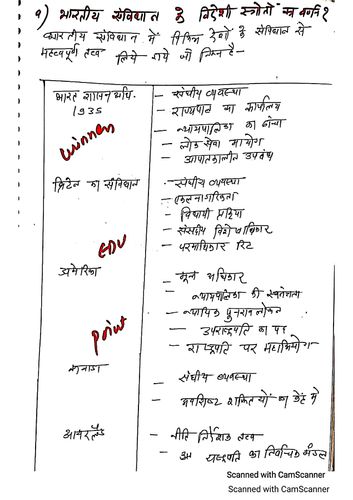 9) भारतीय संविधान के विदेशी स्त्रोतों का वर्णन?
भारतीय संविधान में विभिन्न देशों के संविधान से
महत्वपूर्ण तत्व लिये गये जो निम्न है-
भारत शासन अधि.
1935
- संघीय व्यवस्था
- राज्यपाल का कार्यालय
- न्यायपालिका का ढांचा
- लोक सेवा आयोग
- आपातकालीन उपबंध
winner
ब्रिटेन का संविधान
- संघीय व्यवस्था
- एकल नागरिकता
- विधायी प्रक्रिया
- संसदीय विशेषाधिकार
- परमाधिकार रिट
EDU
अमेरिका
- मूल अधिकार
- न्यायपालिका की स्वतंत्रता
- न्यायिक पुनरावलोकन
- उपराष्ट्रपति का पद
- राष्ट्रपति पर महाभियोग
point
कनाडा
- संघीय व्यवस्था
- अवशिष्ट शक्तियों का केंद्र में
आयरलैंड
- नीति निर्देशक तत्व
- राष्ट्रपति का निर्वाचक मंडल
Scanned with CamScanner
Scanned with CamScanner